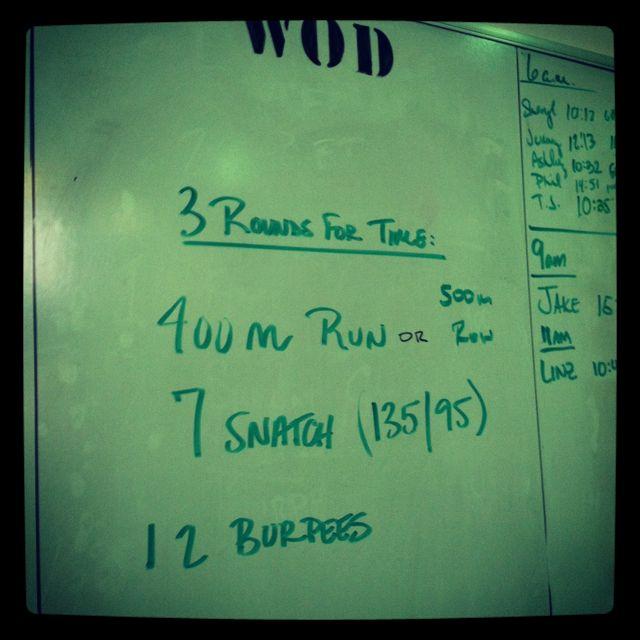 WOD
3 ROUNDS FOR TIME:
400 m RUN OR 500m ROW
7 SNATCH (135/95)
12 BURPEES
6am
10:12
12:13
Ashley 10:32
Phil 14:51
T.S. 10:25
9am
JAKE 15
11AM
10: